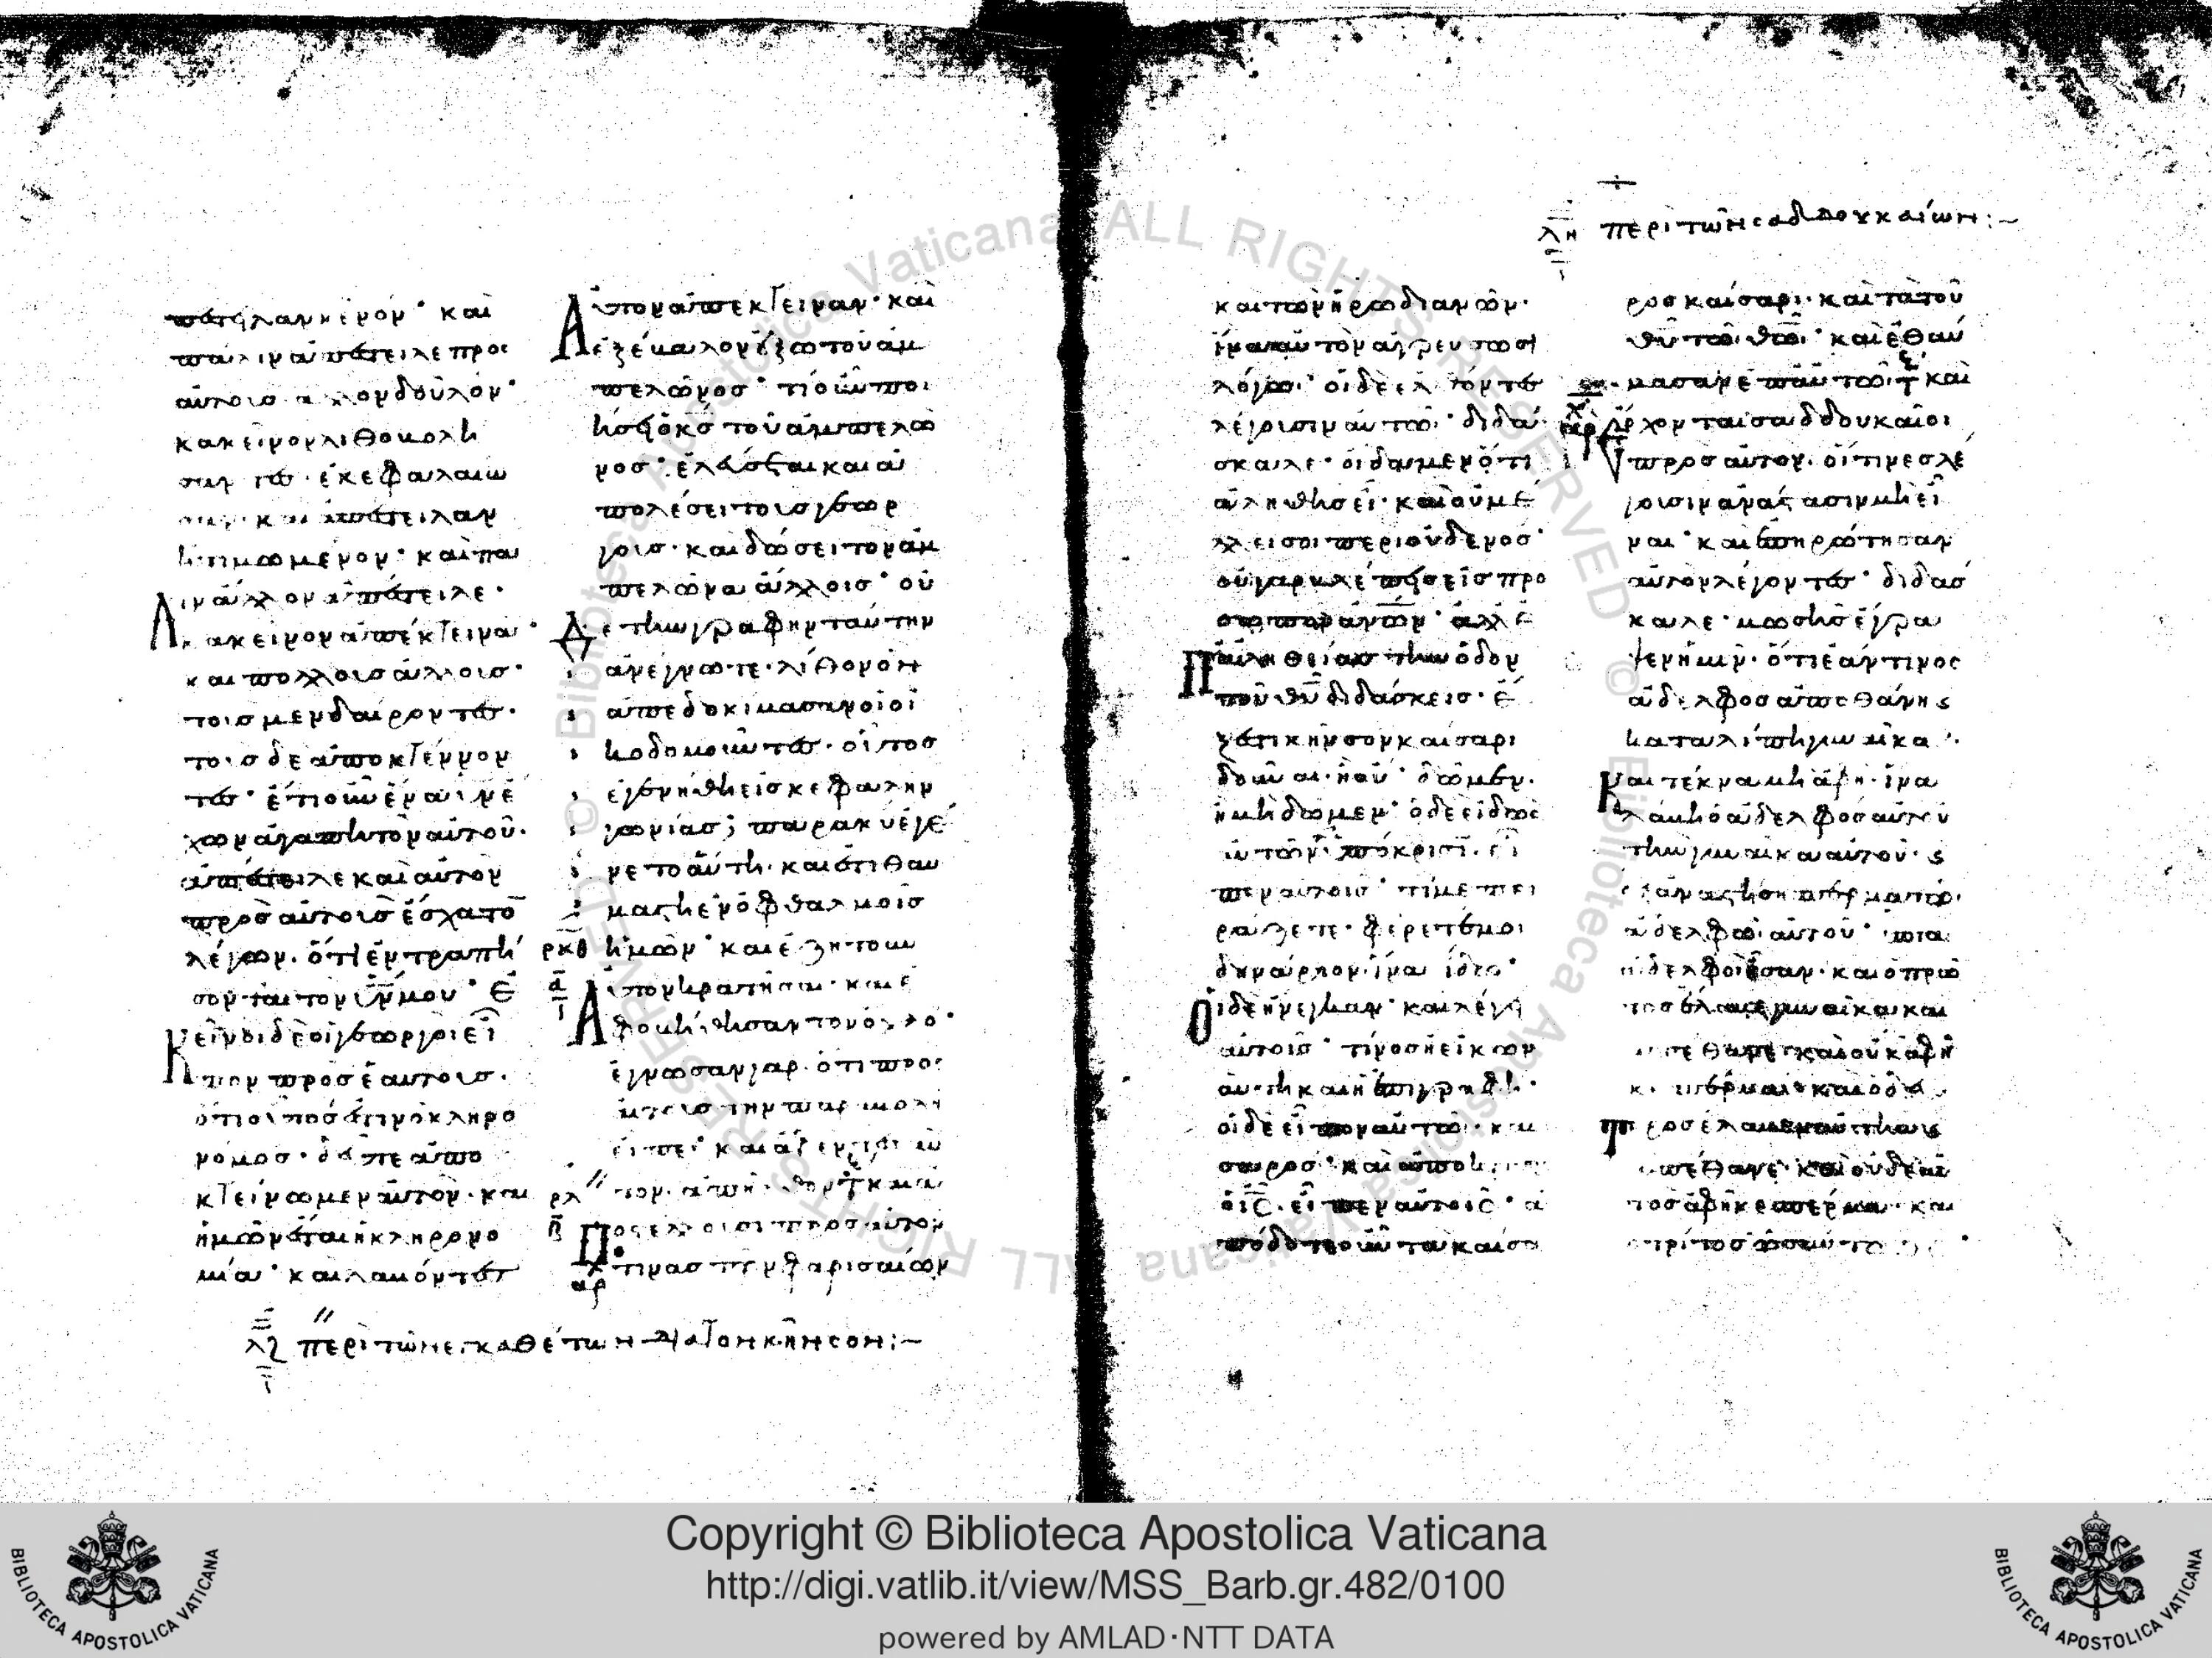 ἀποστῆλαι κενόν· καὶ
πάλιν ἀπέστειλε προς
αὐτοὺσ ἄλλον δοῦλον·
κακεῖνον λιθοβολη
σαντες ἐκεφαλαιω
σαν· και ἀπέστειλαν
ἠτιμωμένον· καὶ πα
λιν ἄλλον ἀπέστειλε·
κακεινον ἀπέκτειναν·
και πολλοισ ἀλλοισ·
τοισ μεν δαίροντες·
τοισ δε ἀποκτέννον
τες· ἔτι οὖν ἕνα υἱὸν ἐ
χων ἀγαπητὸν αὐτοῦ·
ἀπέστειλε καὶ αὐτον
προσ αὐτοισ ἔσχατο
λέγων· ὅτι ἐντραπή
σονται τον υἱόν μου· Ε
κεῖνοι δὲ οἱ γεωργοι εἶ
πον προσ ἑαυτοισ·
ὅτι οὗτοσ ἐστιν ὁ κληρο
νόμοσ· δεῦτε ἀπο
κτείνωμεν αὐτον· και
ἡμῶν ἔσται ἡ κληρονο
μία· και λαβόντες
Αὐτον ἀπεκτειναν· καὶ
ἐξέβαλον ἔξω τοῦ ἀμ
πελῶνοσ· τί οὖν ποι
ήσει ὁ κσ τοῦ ἀμπελῶ
νοσ· ἐλεύσεται και ἀ
πολέσει τοισ γεωρ
γοισ· και δώσει τον ἀμ
πελῶνα ἄλλοισ· οὐ
Δε την γραφην ταύτην
ἀνέγνωτε· λίθον ὃν
ἀπεδοκίμασαν οἱ οἰ
κοδομοῦντες· οὗτοσ
ἐγενήθη εἰσ κεφαλην
γωνίασ; παρα κυ ἐγέ
νετο αὕτη· και ἔστι θαυ
μαστη ἐν ὀφθαλμοῖσ
ρκθ ἡμῶν· καὶ ἐζητουν
Αὐτον κρατῆσαι· και ἐ
φοβήθησαν τον ὄχλο·
ἔγνωσαν γαρ· ὅτι προσ
αὐτοισ την παραβολη
εἶπε· και ἀφέντες αὐ
ρλ τον· ἀπῆλθον· καὶ ἀ
ποστέλλουσι προσ αὐτον
τινασ των φαρισαίων
λζ περὶ τῶν ἐγκαθέτων διὰ τὸν κῆνσον:–
λη περὶ τῶν σαδδουκαίων:–
και των ἡρωδιανῶν·
ἵνα αὐτον ἀγρευσωσι
λόγω· οἱ δε ἐλθόντες
λέγουσιν αὐτῶ· διδά
σκαλε· οἴδαμεν ὅτι
ἀληθησ εἶ· και οὐ μέ
λλει σοι περι οὐδενοσ·
οὐ γαρ βλέπεισ εἰσ προ
σωπον ἀνων· ἀλλ' ἐ
Π' ἀληθείασ την ὁδον
τοῦ θυ διδάσκεισ· ἔ
ξεστι κηνσον καισαρι
δοῦναι· ἢ οὔ· δῶμεν·
ἢ μὴ δῶμεν· ὁ δε εἰδωσ
αὐτῶν τ ὑπόκρισι· εἶ
πεν αὐτοισ· τί με πει
ράζετε· φέρετέ μοι
δηνάριον· ἵνα ἴδω·
Οἱ δε ἤνεγκαν· και λέγει
αὐτοῖσ· τίνοσ ἡ εἰκων
αὕτη και ἡ ἐπιγραφή·
οἱ δε εἶπον αὐτῶ· και
σαροσ· και ἀποκριθεισ
ὁ ισ· εἶπεν αὐτοῖσ· ἀ
πόδοτε οὖν τα καισα
ροσ καίσαρι· και τα τοῦ
θυ τῶ θεῶ· και ἐθαύ
μασαν ἐπ' αὐτῶ· καὶ
Ἔρχονται σαδδουκαῖοι
προσ αὐτον· οἵτινεσ λέ
γουσιν ἀνάστασιν μη εἶ
ναι· και ἐπηρώτησαν
αὐτον λέγοντες· διδάσ
καλε· μωσῆσ ἔγρα
ψεν ἡμῖν· ὅτι ἐάν τινοσ
ἀδελφοσ ἀποθάνη
καταλίπη γυναῖκα·
Και τέκνα μη ἀφῆ· ἵνα
λάβη ὁ ἀδελφοσ αὐτοῦ
την γυναῖκα αὐτοῦ·
ἐξαναστήση σπέρμα τῶ
ἀδελφῶ αὐτοῦ· ἑπτα
ἀδελφοὶ ἦσαν· και ὁ πρῶ
τοσ ἔλαβε γυναῖκα· και
ἀπέθανε· και οὐκ ἀφῆ
κε σπέρμα· και ὁ δεύ
τεροσ ἔλαβεν αὐτήν·
ἀπέθανε· και οὐδε αὐ
τοσ ἀφῆκε σπέρμα· και
ὁ τρίτοσ ὡσαύτωσ
Copyright © Biblioteca Apostolica Vaticana
http://digi.vatlib.it/view/MSS_Barb.gr.482/0100
powered by AMLAD·NTT DATA
BIBLIOTECA APOSTOLICA VATICANA
BIBLIOTECA APOSTOLICA VATICANA